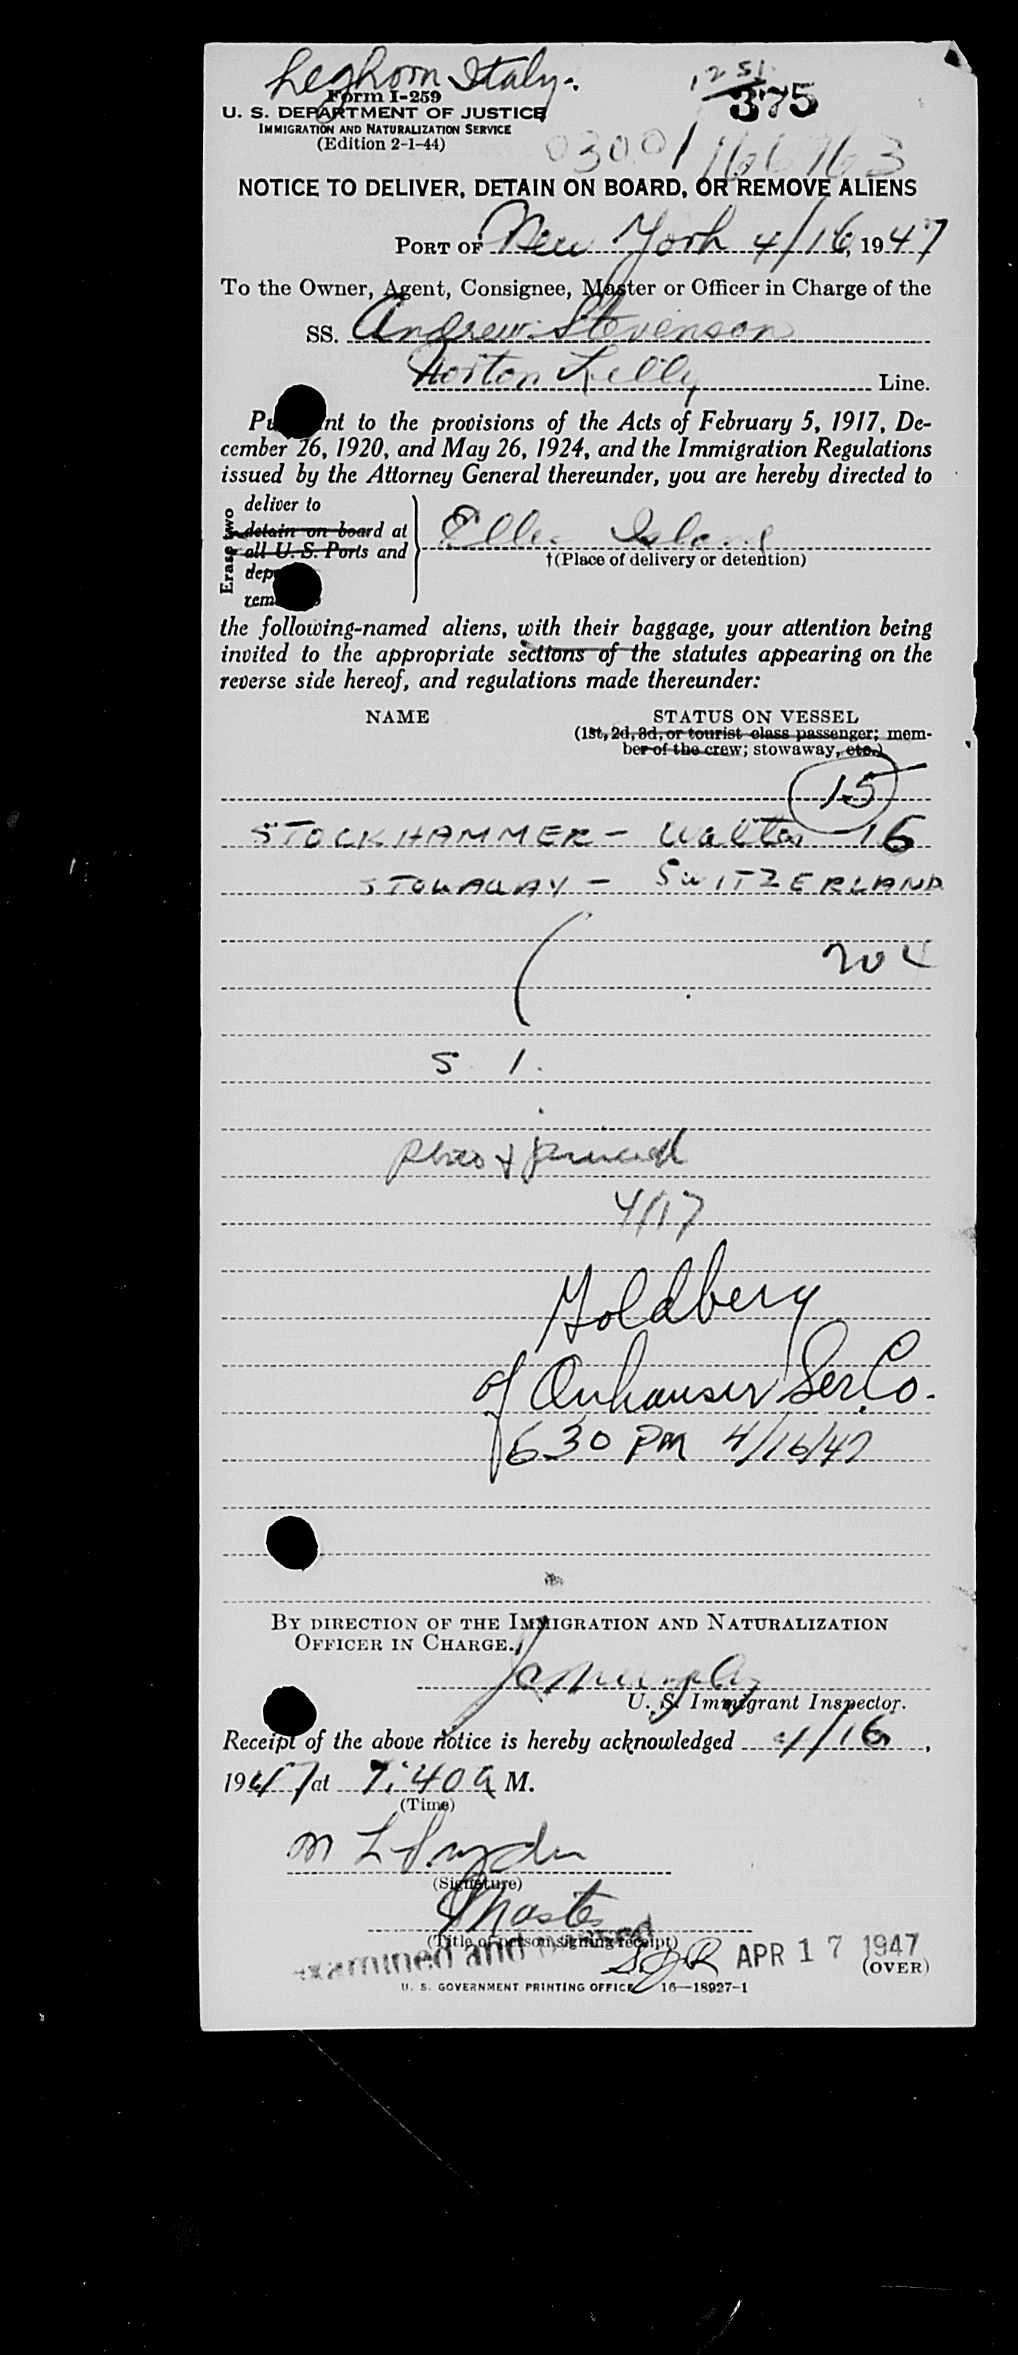 Leghorn Italy.
1251
375
Form I-259
U. S. DEPARTMENT OF JUSTICE
IMMIGRATION AND NATURALIZATION SERVICE
(Edition 2-1-44)
0300/166763
NOTICE TO DELIVER, DETAIN ON BOARD, OR REMOVE ALIENS
PORT OF New York 4/16, 1947
To the Owner, Agent, Consignee, Master or Officer in Charge of the
SS. Andrew Stevenson
Norton Lelly Line.
nt to the provisions of the Acts of February 5, 1917, De-
cember 26, 1920, and May 26, 1924, and the Immigration Regulations
issued by the Attorney General thereunder, you are hereby directed to
Erase two
deliver to
detain on board at
all U. S. Ports and
Ellis Island
†(Place of delivery or detention)
the following-named aliens, with their baggage, your attention being
invited to the appropriate sections of the statutes appearing on the
reverse side hereof, and regulations made thereunder:
NAME STATUS ON VESSEL
(1st, 2d, 3d, or tourist class passenger; mem-
ber of the crew; stowaway, etc.)
15
STOCKHAMMER - Walter 16
STOWAWAY - SWITZERLAND
204
S. I.
4/17
Goldberg
of Ser. Co.
630 PM 4/16/47
BY DIRECTION OF THE IMMIGRATION AND NATURALIZATION
OFFICER IN CHARGE.
U. S. Immigrant Inspector.
Receipt of the above notice is hereby acknowledged 4/16,
1947 at 7:40 A M.
(Time)
M L Snyder
(Signature)
Master
(Title of person signing receipt)
examined and
APR 17 1947
(OVER)
U. S. GOVERNMENT PRINTING OFFICE 16—18927-1